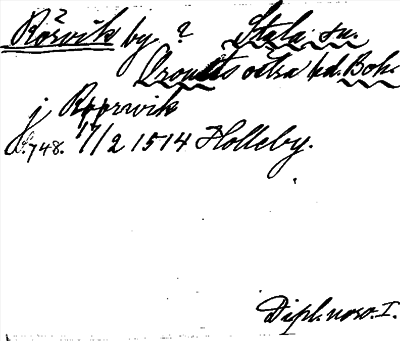 Rörvik by ? Stala sn.
Orousts östra hd. Boh.
j Rørrwik
S. 748. 17/2 1514 Holleby.
Dipl. norv. I.